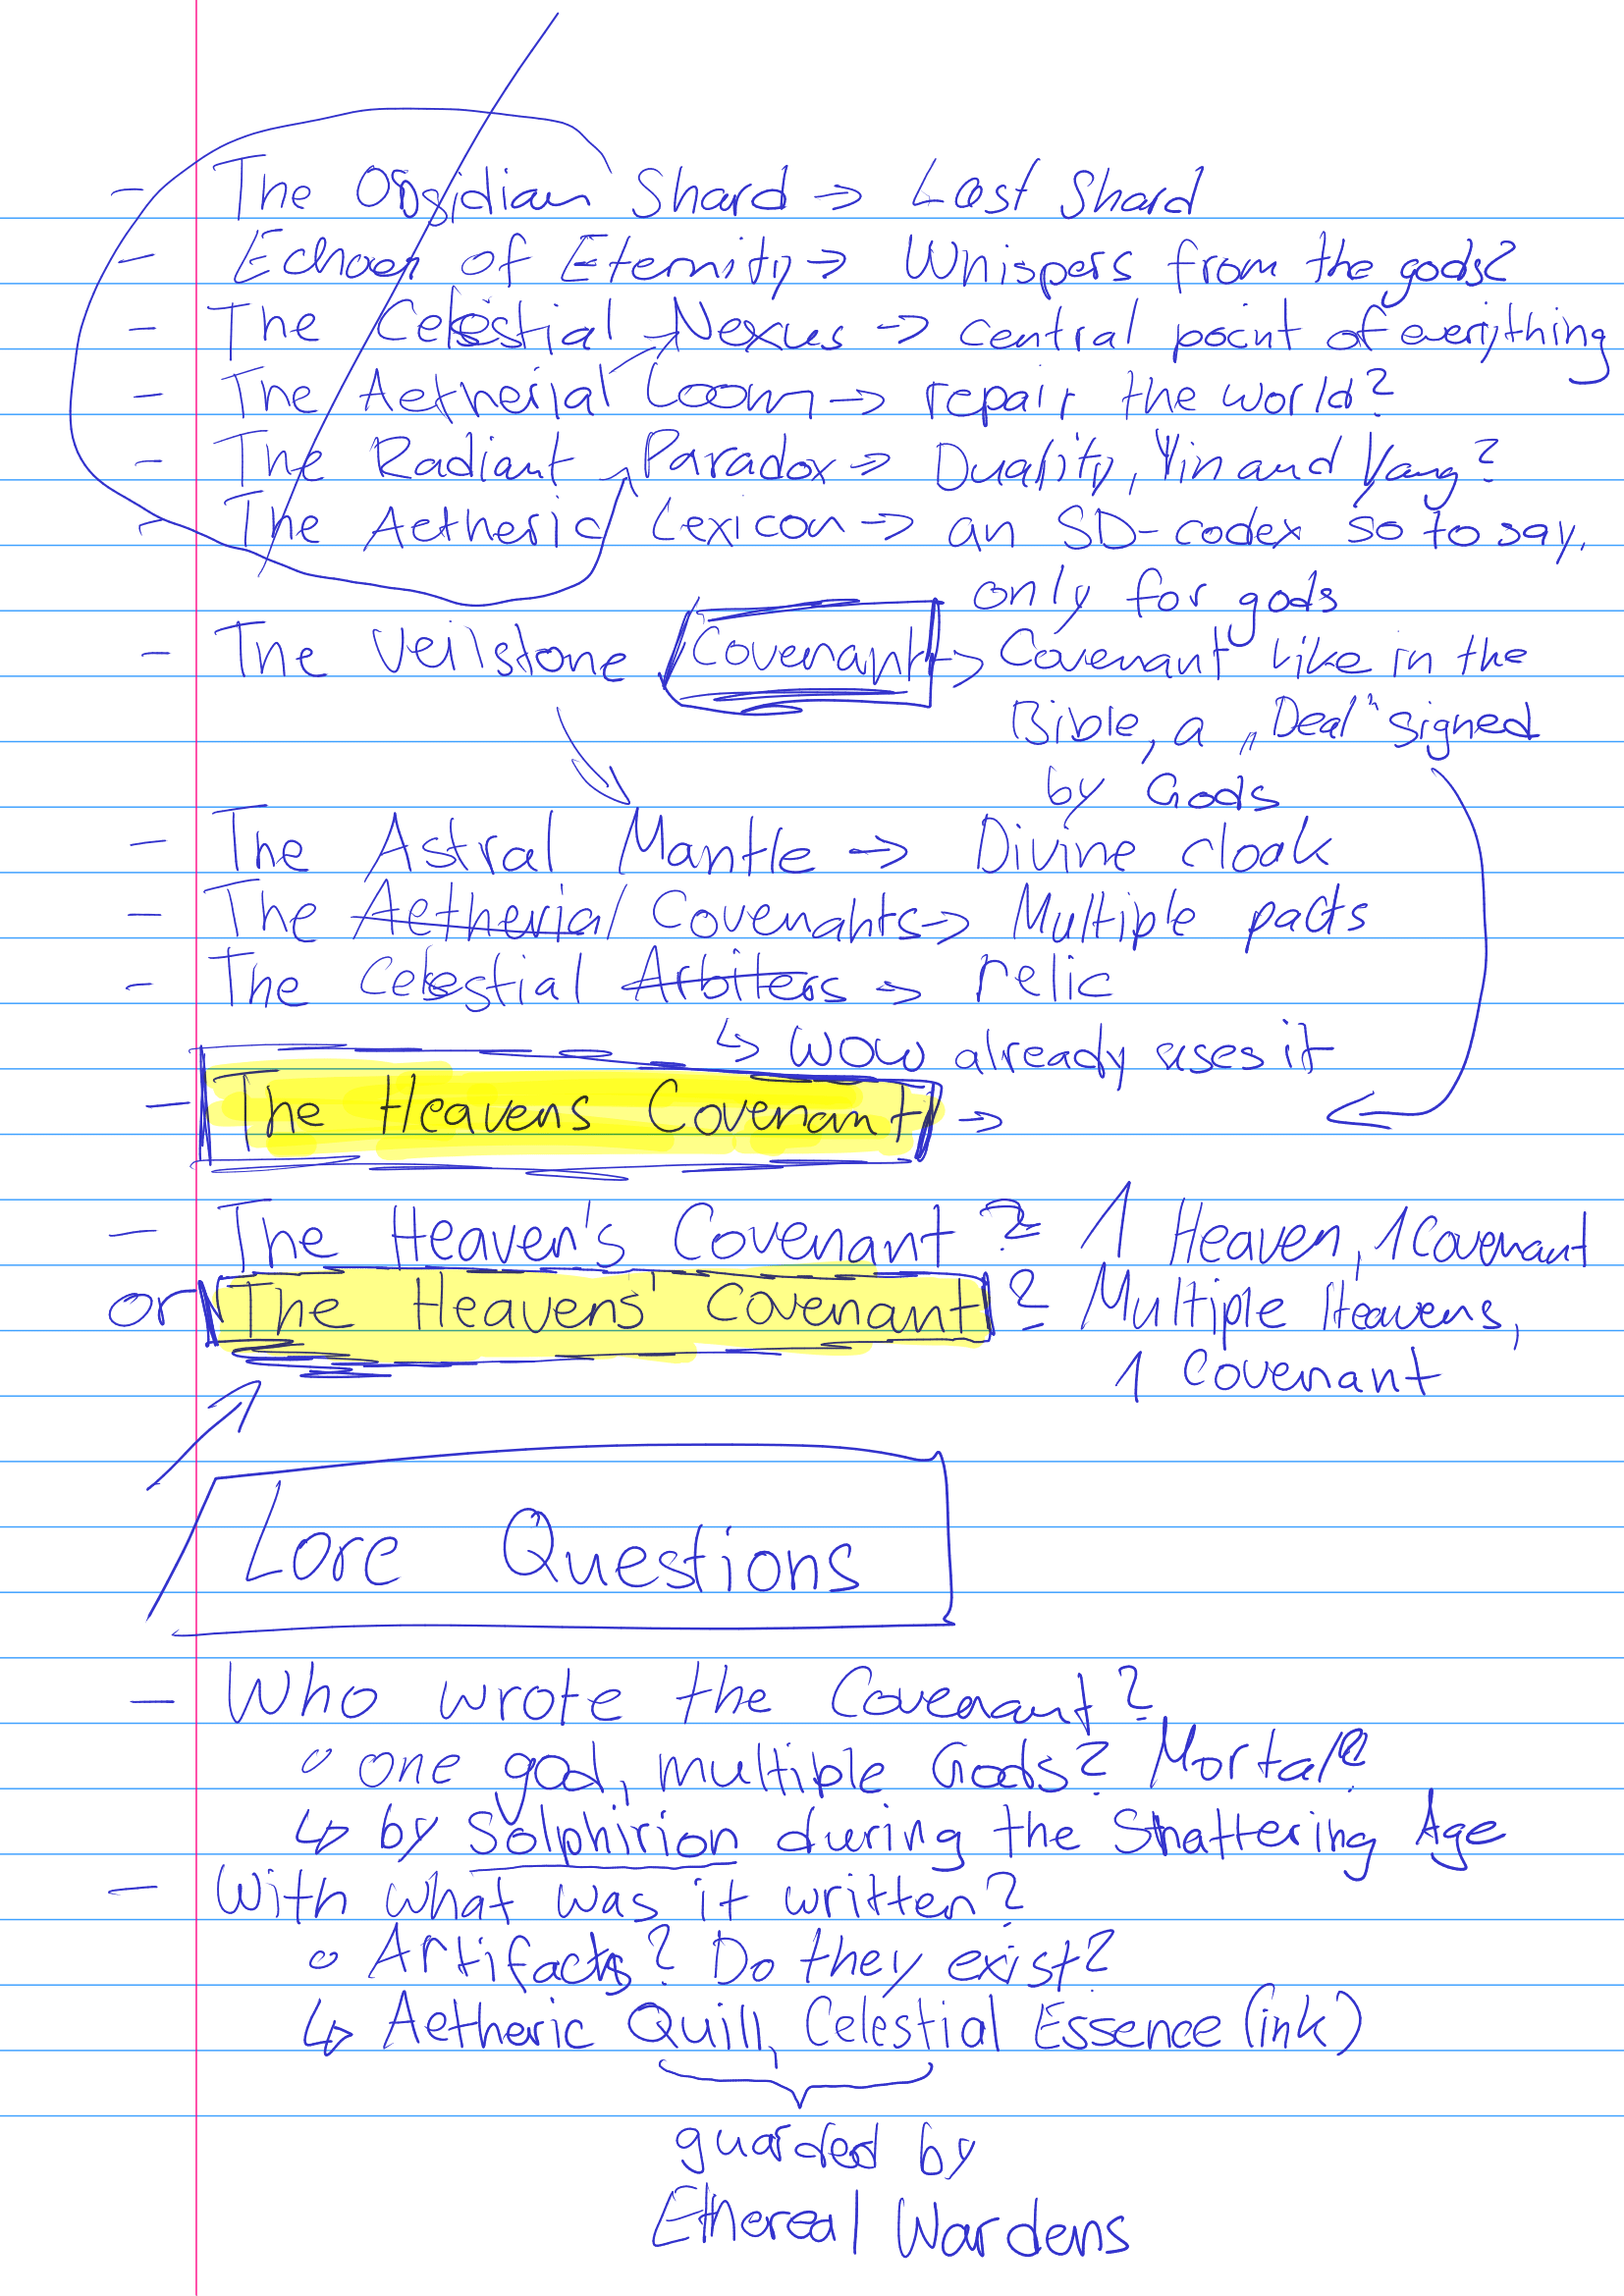 - The Obsidian Shard → Last Shard
- Echoes of Eternity → Whispers from the gods?
- The Celestial Nexus → central point of everything
- The Aetherial Loom → repair the world?
- The Radiant Paradox → Duality, Yin and Yang?
- The Aetheric Lexicon → an SD-codex so to say,
only for gods
- The Veilstone Covenant → Covenant like in the
Bible, a „Deal" signed
by Gods
- The Astral Mantle → Divine cloak
- The Aetherial Covenants → Multiple pacts
- The Celestial Arbiters → relic
↳ WOW already uses it
- The Heavens Covenant →
- The Heaven's Covenant? 1 Heaven, 1 Covenant
or The Heavens' Covenant? Multiple Heavens,
1 Covenant
Lore Questions
- Who wrote the Covenant?
o one god, multiple Gods? Mortal?
↳ by Solphirion during the Shattering Age
- With what was it written?
o Artifacts? Do they exist?
↳ Aetheric Quill, Celestial Essence (ink)
guarded by
Ethereal Wardens